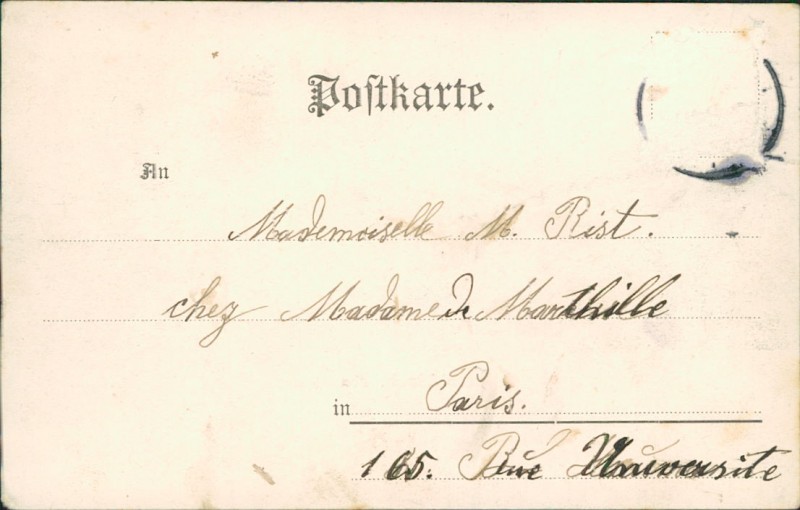 Postkarte.
An
Mademoiselle M. Rist.
chez Madame de Marthille
in Paris.
165. Rue Université